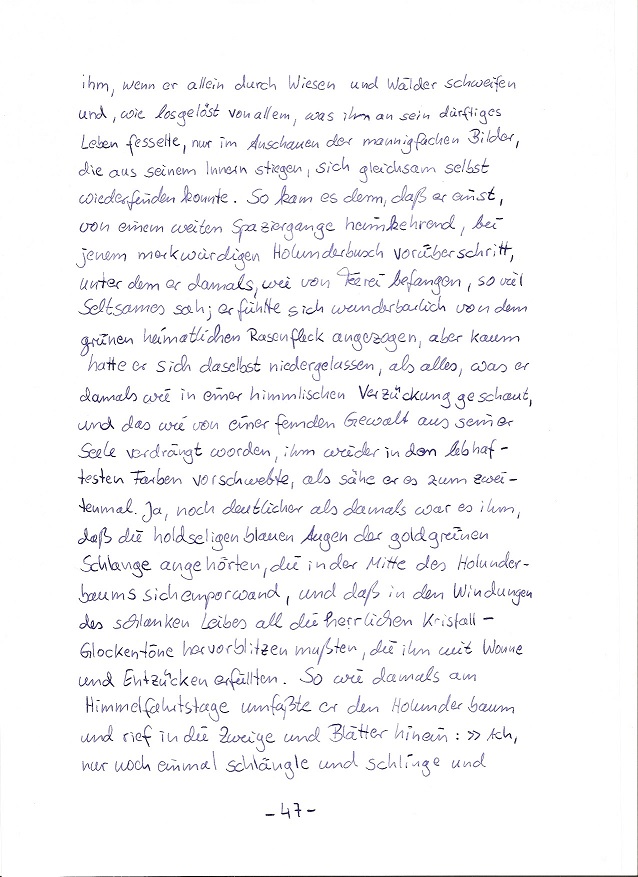 ihm, wenn er allein durch Wiesen und Wälder schweifen
und, wie losgelöst von allem, was ihn an sein dürftiges
Leben fesselte, nur im Anschauen der mannigfachen Bilder,
die aus seinem Innern stiegen, sich gleichsam selbst
wiederfinden konnte. So kam es denn, daß er einst,
von einem weiten Spaziergange heimkehrend, bei
jenem merkwürdigen Holunderbusch vorüberschritt,
unter dem er damals, wie von Feerei befangen, so viel
Seltsames sah; er fühlte sich wunderbarlich von dem
grünen heimatlichen Rasenfleck angezogen, aber kaum
hatte er sich daselbst niedergelassen, als alles, was er
damals wie in einer himmlischen Verzückung geschaut,
und das wie von einer fremden Gewalt aus seiner
Seele verdrängt worden, ihm wieder in den lebhaf-
testen Farben vorschwebte, als sähe er es zum zwei-
tenmal. Ja, noch deutlicher als damals war es ihm,
daß die holdseligen blauen Augen der goldgrünen
Schlange angehörten, die in der Mitte des Holunder-
baums sich emporwand, und daß in den Windungen
des schlanken Leibes all die herrlichen Kristall-
Glockentöne hervorblitzen mußten, die ihn mit Wonne
und Entzücken erfüllten. So wie damals am
Himmelfahrtstage umfaßte er den Holunderbaum
und rief in die Zweige und Blätter hinein: »Ach,
nur noch einmal schlängle und schlinge und
- 47 -